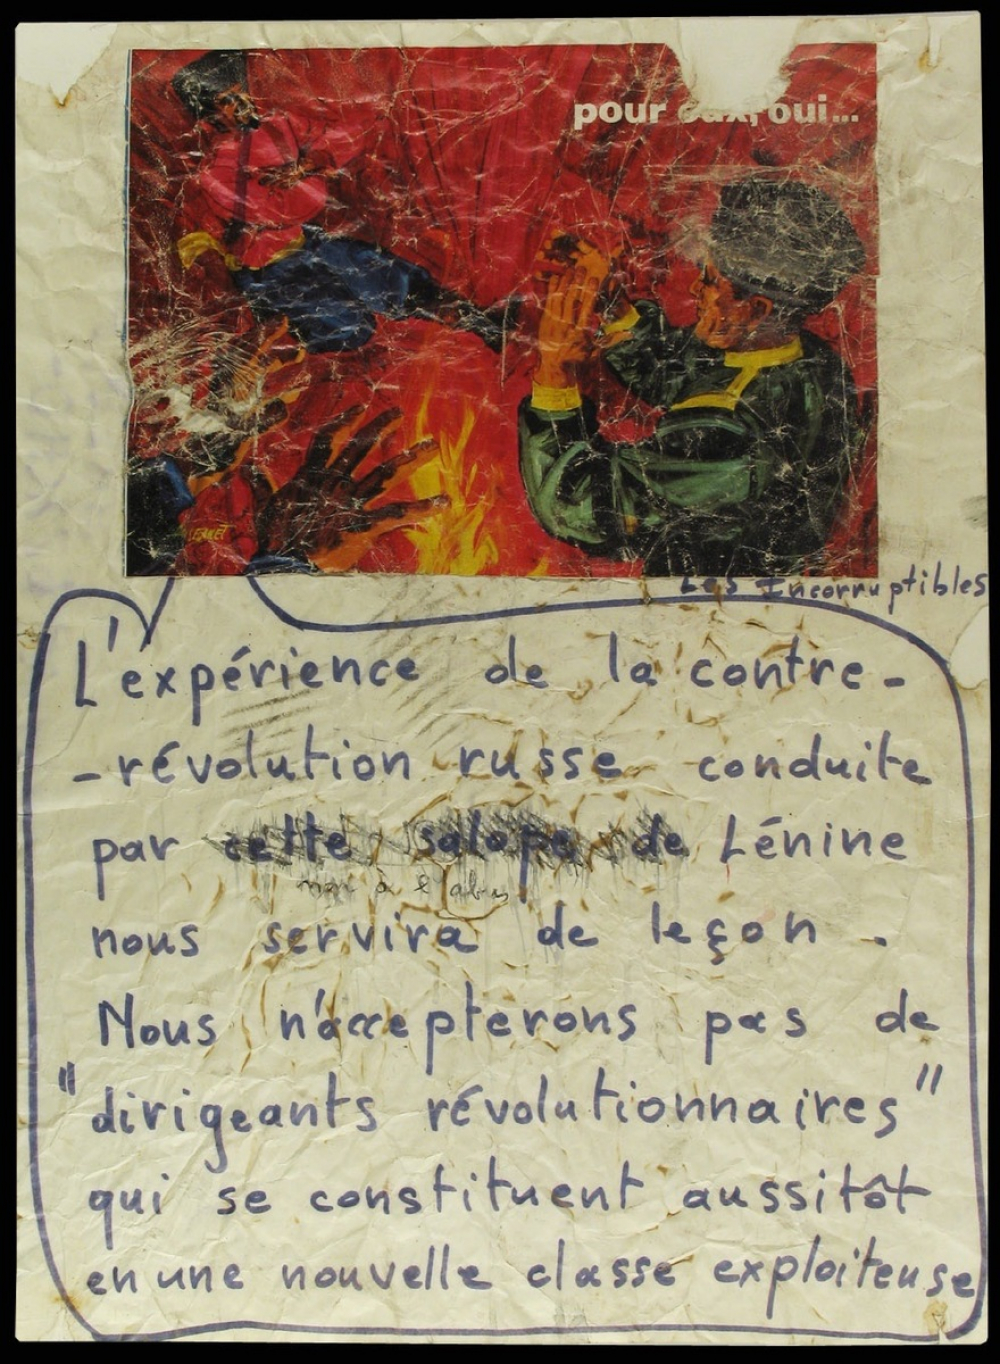 pour eux, oui...
LEANET
Les Incorruptibles
L'expérience de la contre-
-révolution russe conduite
par cette salope de Lénine
non à l'abus
nous servira de leçon.
Nous n'accepterons pas de
"dirigeants révolutionnaires"
qui se constituent aussitôt
en une nouvelle classe exploiteuse